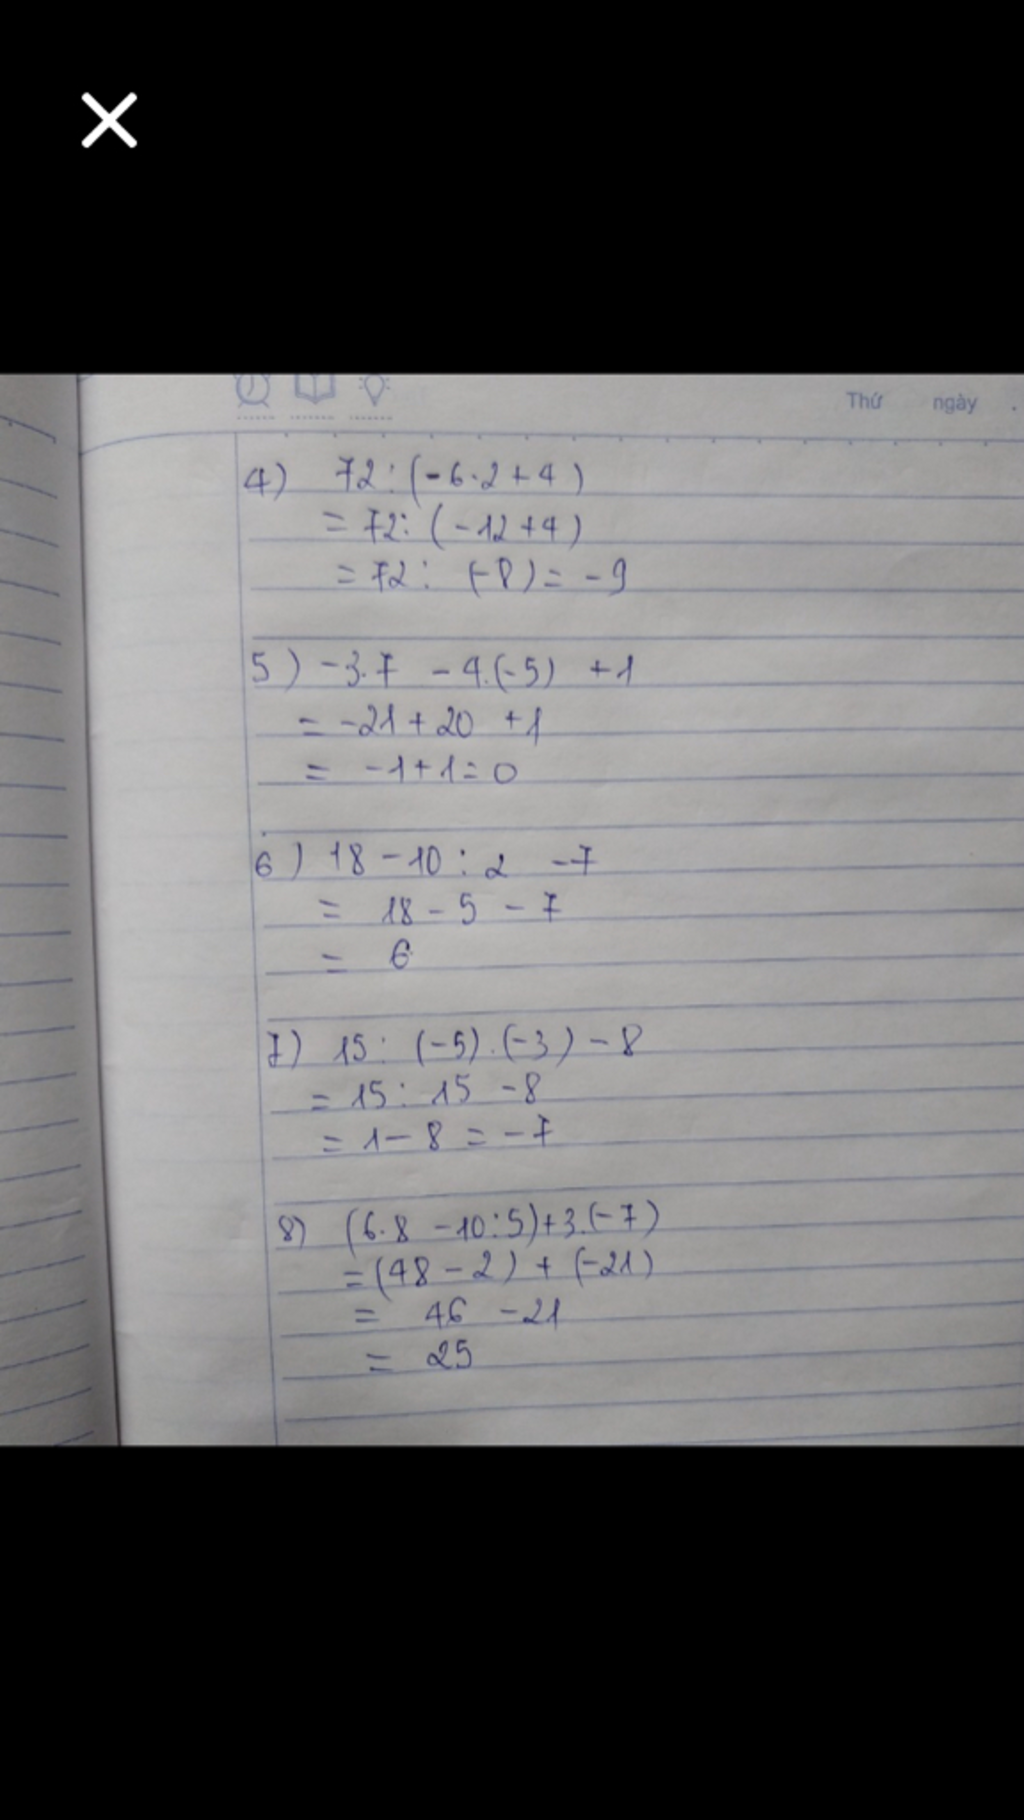 Thứ ngày .
4) 72 : (-6.2+4)
= 72: (-12+4)
= 72 : (-8) = -9
5) -3.7 - 4.(-5) +1
= -21 + 20 +1
= -1+1=0
6) 18 - 10 : 2 -7
= 18 - 5 - 7
= 6
7) 15 : (-5).(-3) - 8
= 15 : 15 -8
= 1 - 8 = -7
8) (6.8 -10:5)+3.(-7)
=(48 - 2) + (-21)
= 46 -21
= 25